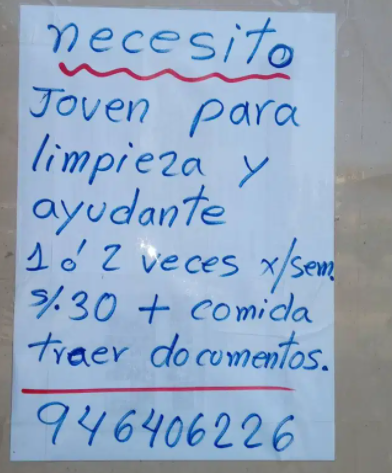 necesito
Joven para
limpieza y
ayudante
1 ó 2 veces x/sem.
s/.30 + comida
traer documentos.
946406226